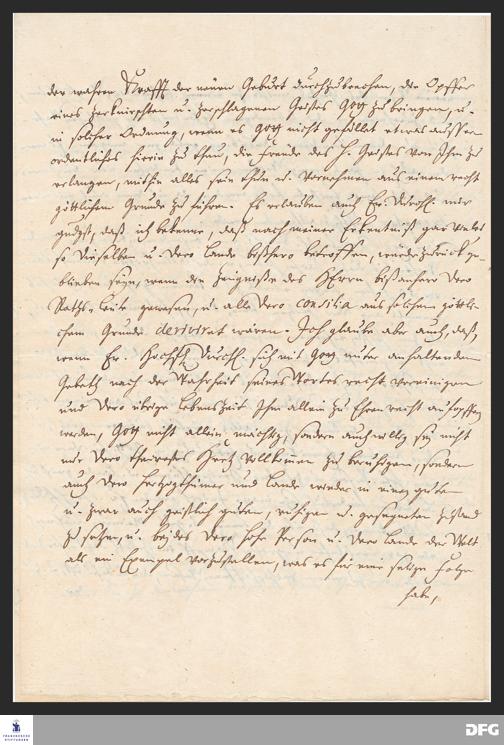 der wahren Krafft der neuen Geburt durchzubrechen, die Opffer
eines zerknirschten u. zerschlagenen Geistes Gott zu bringen, u.
in solcher Ordnung, wenn es Gott nicht gefället etwas ausser-
ordentliches hierin zu thun, die Freude des H. Geistes von Ihm zu
erlangen, mithin alles sein thun u. Vornehmen aus einem recht
göttlichem Grunde zu führen. Es erlauben auch Ew. Durchl. mir
gndgst, daß ich bekenne, daß nach meiner Erkentniß gar vieles
so Dieselben u. Dero Lande bißhero betroffen, würde zurück ge-
blieben seyn, wenn die Zeugnisse des HErrn bißanhero Dero
Raths-Leute gewesen, u. alle Dero consilia aus solchem göttli-
chem Grunde derivirat wären. Ich glaube aber auch, daß,
wenn Ew. Hochfstl. Durchl. sich mit Gott unter anhaltendem
Gebeth nach der Wahrheit seines Wortes recht vereinigen
und Dero übrige Lebenszeit Ihm allein zu Ehren recht aufopffern
werden, Gott nicht allein mächtig, sondern auch willig sey nicht
nur Dero theurestes Hertz vollkommen zu beruhigen, sondern
auch Dero Hertzogthümer und Lande wieder in einen guten
u. zwar auch geistlich guten, ruhigen u. gesegneten Zustand
zu setzen, u. beydes Dero hohe Person u. Dero Lande der Welt
als ein Exempel vorzustellen, was es für eine selige Folge
habe,
FRANCKESCHE
STIFTUNGEN
DFG